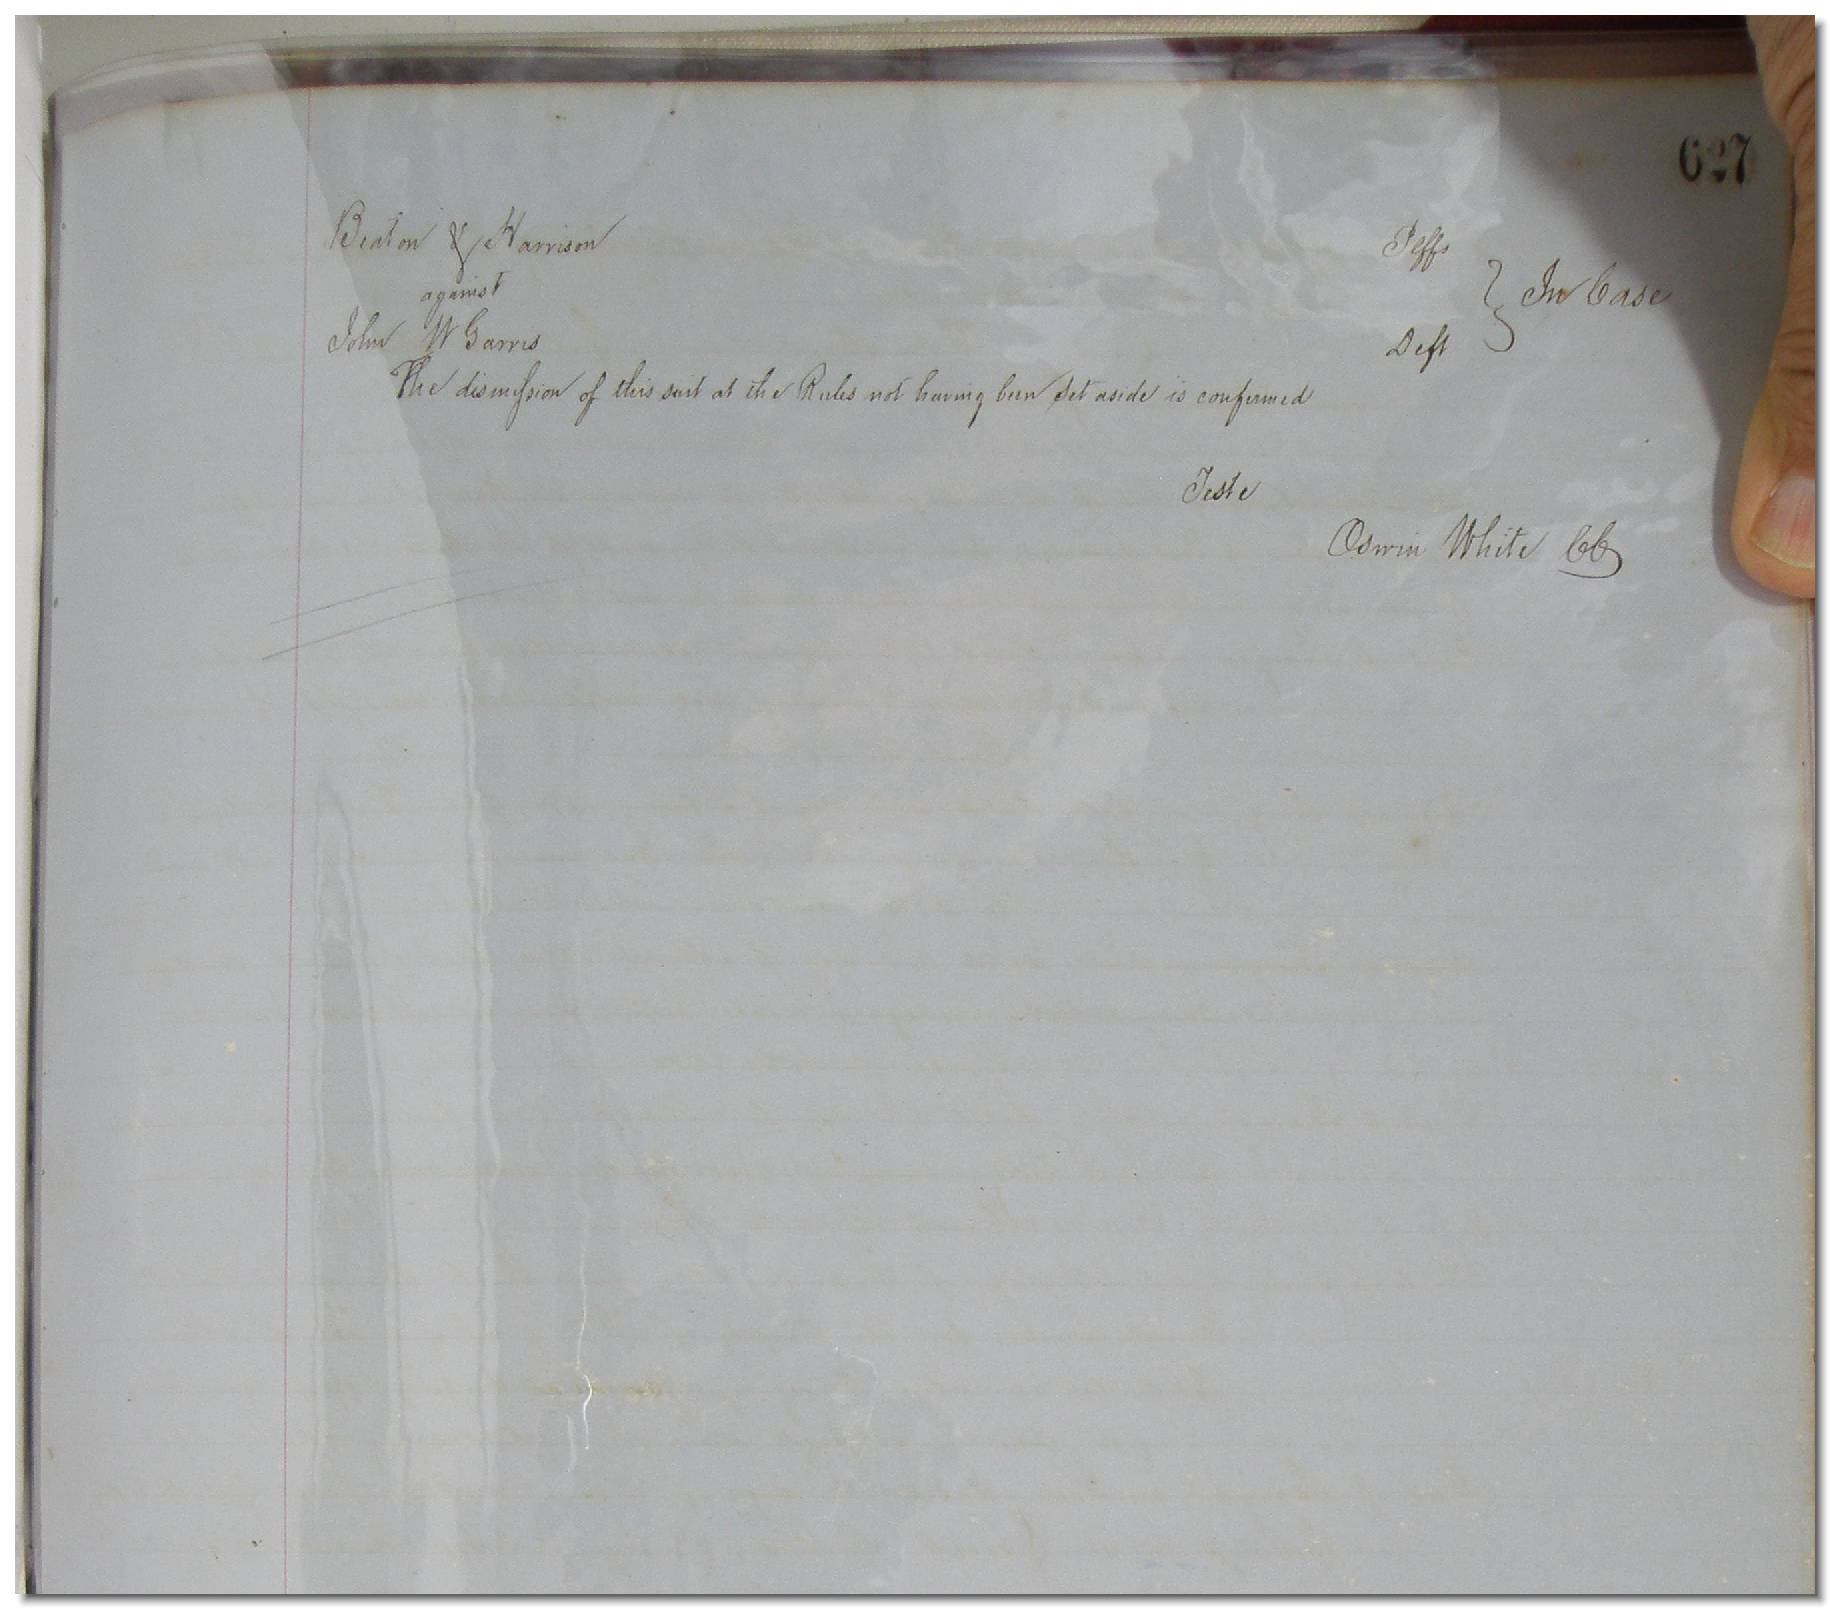 627
Beaton & Harrison Plffs
against } In Case
John W Garris Deft
The dismission of this suit at the Rules not having been set aside is confirmed
Teste
Oswin White CC